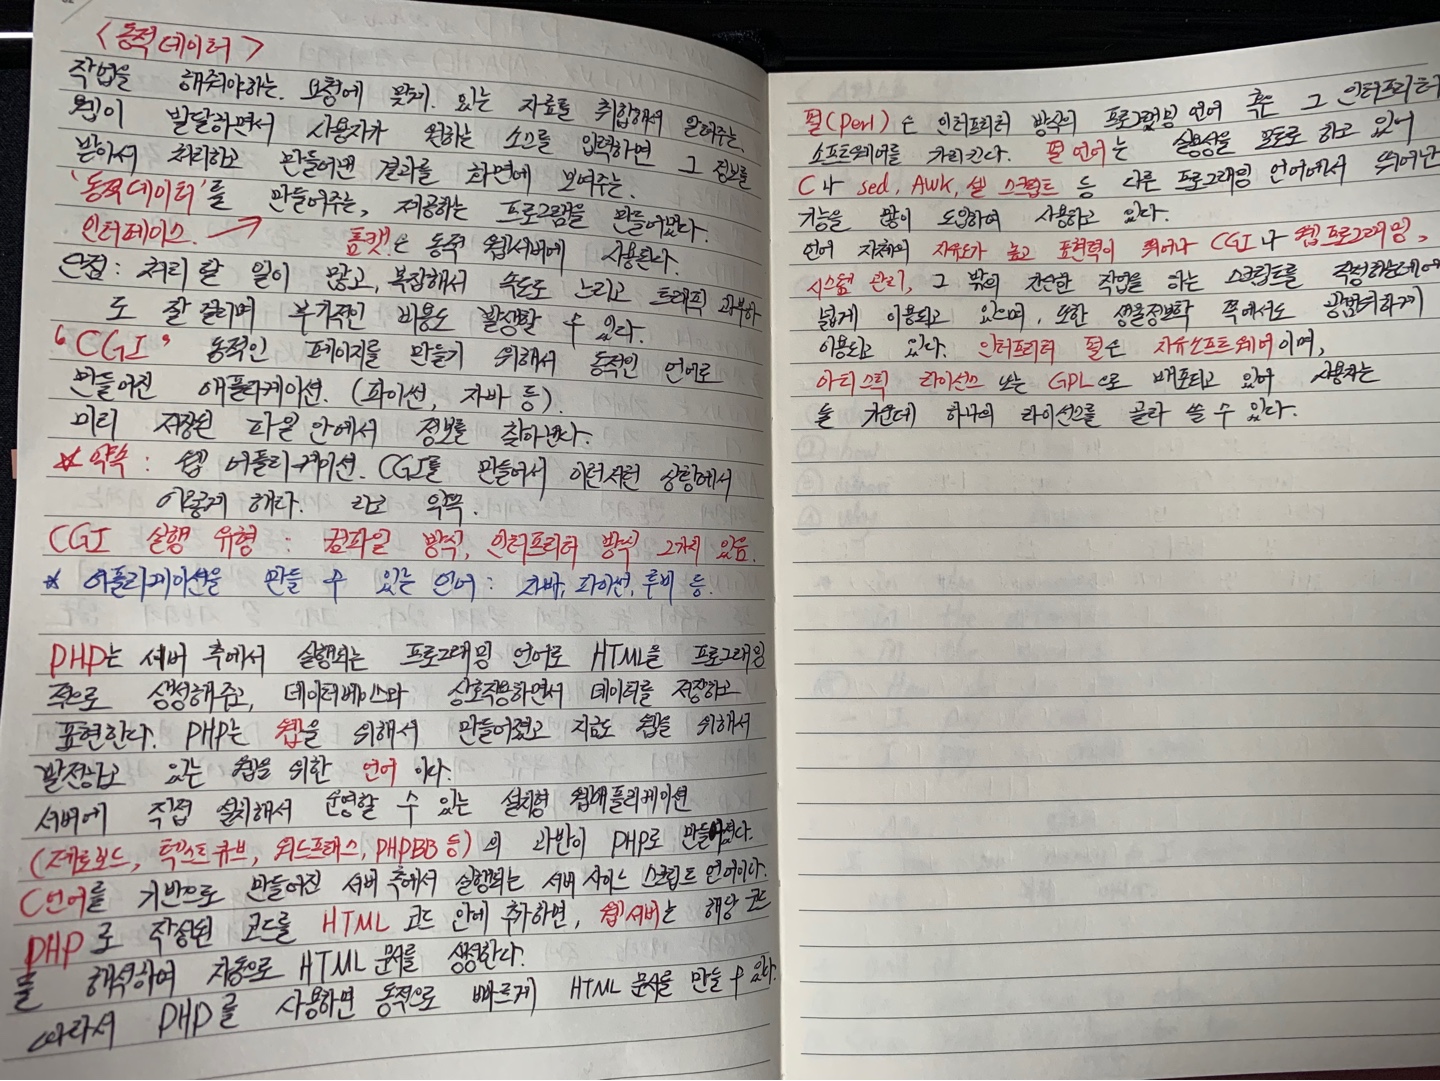 <동적데이터>
작업을 해줘야하는. 요청에 맞게. 있는 자료를 취합해서 알려주는.
웹이 발달하면서 사용자가 원하는 소스를 입력하면 그 정보를
받아서 처리하고 만들어낸 결과를 화면에 보여주는.
'동적데이터'를 만들어주는, 제공하는 프로그램을 만들어냈다.
인터페이스. → 톰캣은 동적 웹서버에 사용된다.
단점 : 처리 할 일이 많고, 복잡해서 속도도 느리고 트래픽 과부하
도 잘 걸리며 부가적인 비용도 발생할 수 있다.
"CGI" 동적인 페이지를 만들기 위해서 동적인 언어로
만들어진 애플리케이션. (파이썬, 자바 등).
미리 저장된 파일 안에서 정보를 찾아낸다.
☆ 약속 : 웹 어플리케이션. CGI를 만들어서 이런저런 상황에서
이렇게 해라. 라고 약속.
CGI 실행 유형 : 컴파일 방식, 인터프리터 방식 2가지 있음.
* 어플리케이션을 만들 수 있는 언어 : 자바, 파이썬, 루비 등.
PHP는 서버 측에서 실행되는 프로그래밍 언어로 HTML을 프로그래밍
적으로 생성해주고, 데이터베이스와 상호작용하면서 데이터를 저장하고
표현한다. PHP는 웹을 위해서 만들어졌고 지금도 웹을 위해서
발전하고 있는 웹을 위한 언어 이다.
서버에 직접 설치해서 운영할 수 있는 설치형 웹애플리케이션
(제로보드, 텍스트큐브, 워드프레스, PHPBB 등)의 과반이 PHP로 만들어졌다.
C언어를 기반으로 만들어진 서버 측에서 실행되는 서버 사이드 스크립트 언어이다.
PHP로 작성된 코드를 HTML 코드 안에 추가하면, 웹서버는 해당 코드
를 해석하여 자동으로 HTML 문서를 생성한다.
따라서 PHP를 사용하면 동적으로 빠르게 HTML 문서를 만들 수 있다.
펄(Perl)은 인터프리터 방식의 프로그래밍 언어 혹은 그 인터프리터
소프트웨어를 가리킨다. 펄 언어는 실용성을 모토로 하고 있어
C나 sed, Awk, 쉘 스크립트 등 다른 프로그래밍 언어에서 뛰어난
기능을 많이 도입하여 사용하고 있다.
언어 자체의 자유도가 높고 표현력이 뛰어나 CGI나 웹프로그래밍,
시스템 관리, 그 밖의 간단한 작업을 하는 스크립트를 작성하는데에
넓게 이용되고 있으며, 또한 생물정보학 쪽에서도 광범위하게
이용되고 있다. 인터프리터 펄은 자유소프트웨어이며,
아티스틱 라이선스 또는 GPL으로 배포되고 있어 사용자는
둘 가운데 하나의 라이선스를 골라 쓸 수 있다.